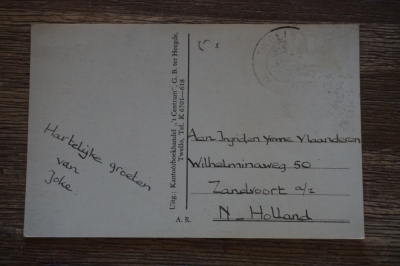 Hartelijke groeten
van
Joke
Uitg.: Kantoorboekhandel „'t Centrum", G. B. ter Heegde,
Twello, Tel. K 6701—618
A. R.
Aan Ingrid en Yvonne Vlaanderen
Wilhelminaweg 50
Zandvoort a/z
N-Holland